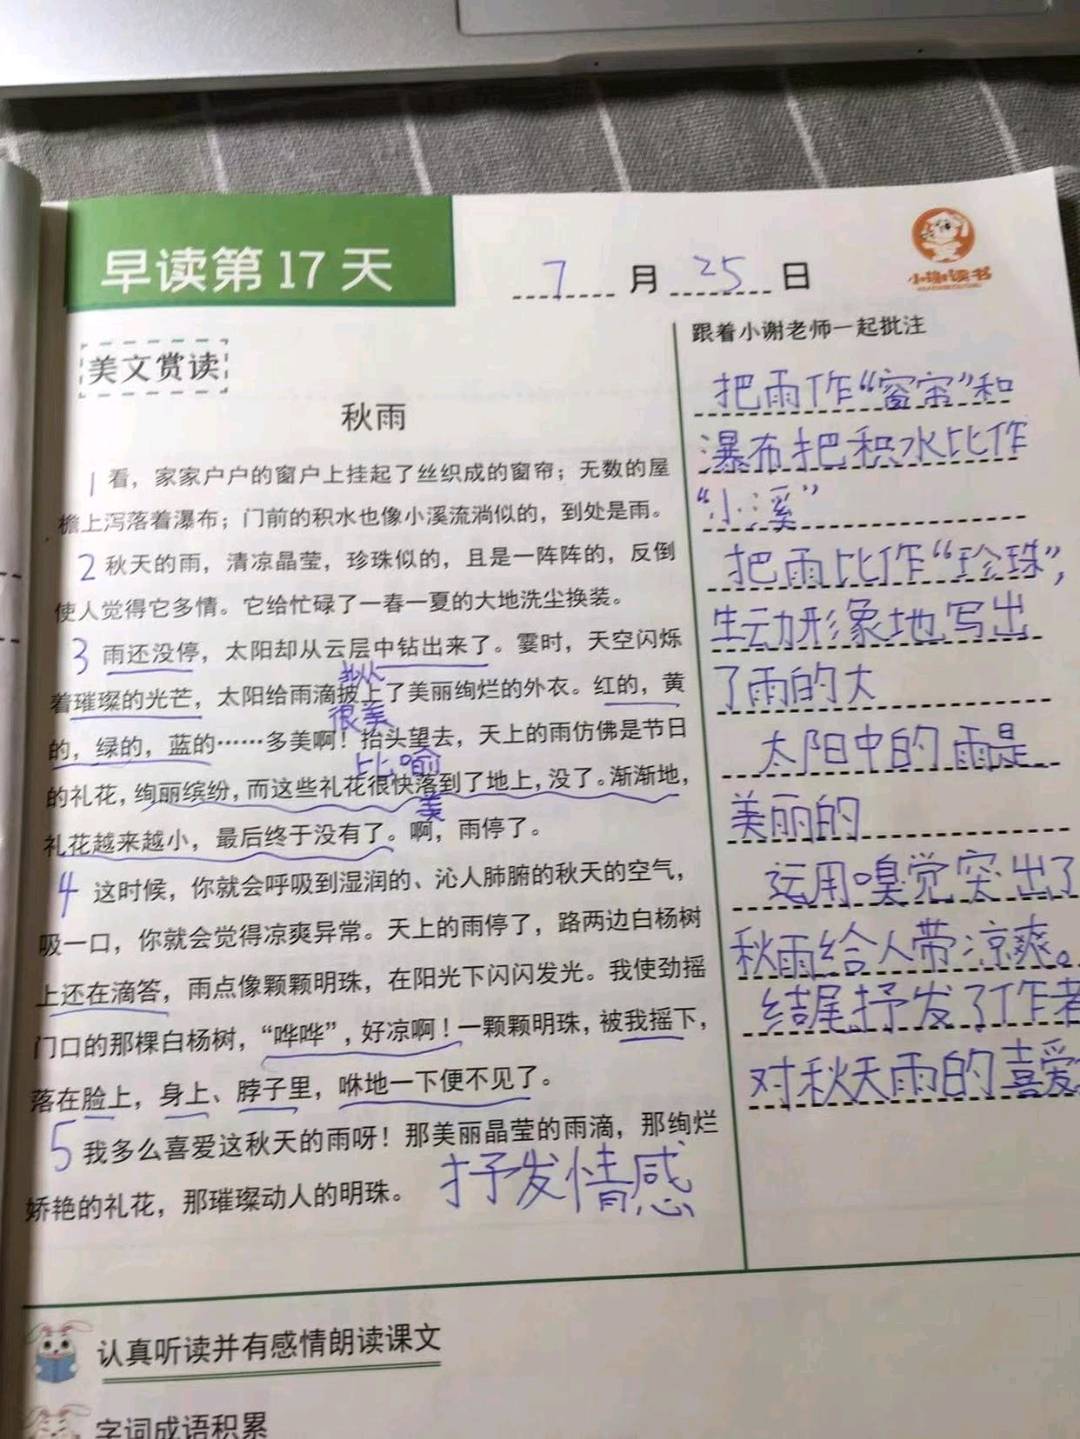 早读第17天
7月25日
小谢读书
美文赏读
秋雨
1看，家家户户的窗户上挂起了丝织成的窗帘；无数的屋
檐上泻落着瀑布；门前的积水也像小溪流淌似的，到处是雨。
2秋天的雨，清凉晶莹，珍珠似的，且是一阵阵的，反倒
使人觉得它多情。它给忙碌了一春一夏的大地洗尘换装。
3雨还没停，太阳却从云层中钻出来了。霎时，天空闪烁
着璀璨的光芒，太阳给雨滴披上了美丽绚烂的外衣。红的，黄
很美
的，绿的，蓝的……多美啊！抬头望去，天上的雨仿佛是节日
比喻
的礼花，绚丽缤纷，而这些礼花很快落到了地上，没了。渐渐地，
美
礼花越来越小，最后终于没有了。啊，雨停了。
4这时候，你就会呼吸到湿润的、沁人肺腑的秋天的空气，
吸一口，你就会觉得凉爽异常。天上的雨停了，路两边白杨树
上还在滴答，雨点像颗颗明珠，在阳光下闪闪发光。我使劲摇
门口的那棵白杨树，“哗哗”，好凉啊！一颗颗明珠，被我摇下，
落在脸上，身上、脖子里，咻地一下便不见了。
5我多么喜爱这秋天的雨呀！那美丽晶莹的雨滴，那绚烂
娇艳的礼花，那璀璨动人的明珠。
抒发情感
跟着小谢老师一起批注
把雨作“窗帘”和
瀑布把积水比作
“小溪”
把雨比作“珍珠”，
生动形象地写出
了雨的大
太阳中的雨是
美丽的
运用嗅觉突出了
秋雨给人带凉爽。
结尾抒发了作者
对秋天雨的喜爱
认真听读并有感情朗读课文
字词成语积累